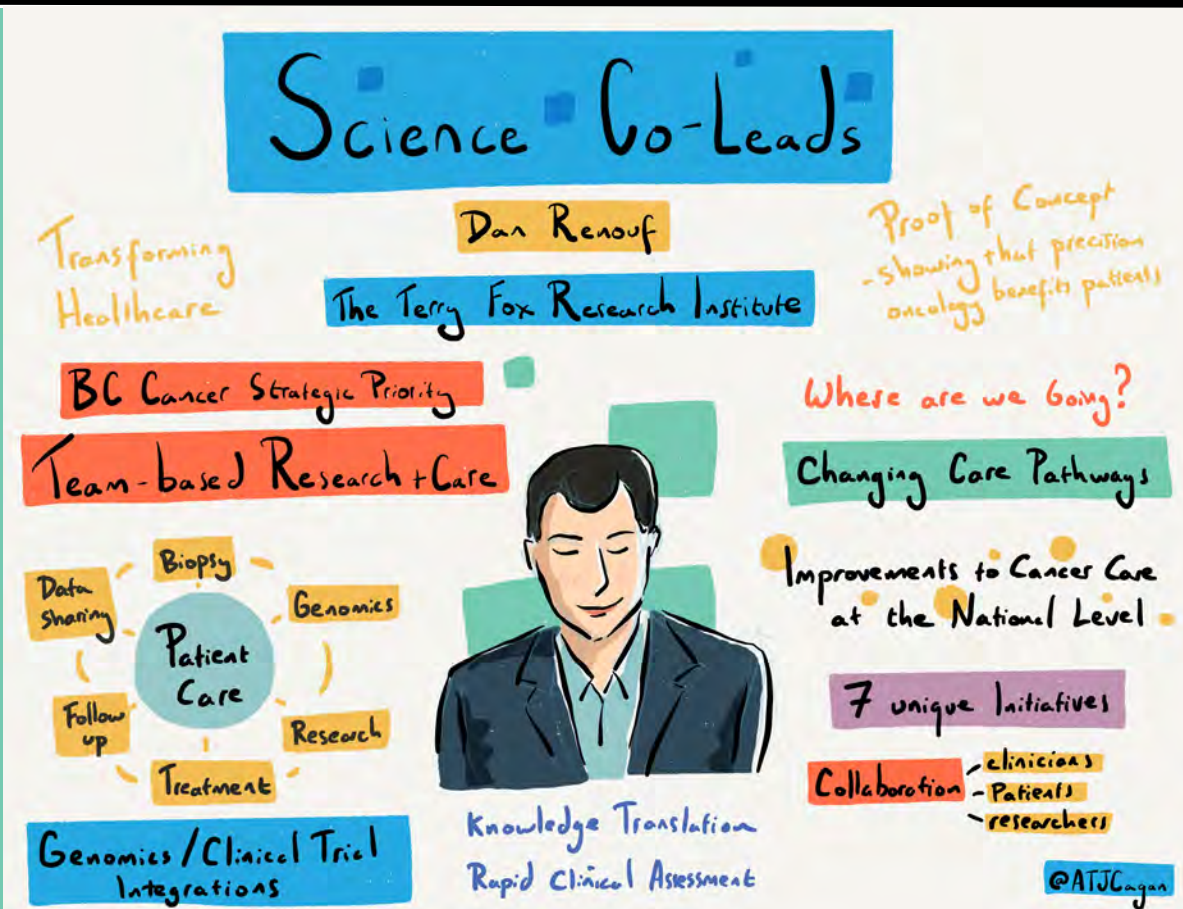 Science Co-Leads
Dan Renouf
The Terry Fox Research Institute
Transforming
Healthcare
Proof of Concept
- showing that precision
oncology benefits patients
BC Cancer Strategic Priority
Team-based Research + Care
Biopsy
Genomics
Research
Treatment
Follow
up
Data
Sharing
Patient
Care
Genomics / Clinical Trial
Integrations
Knowledge Translation
Rapid Clinical Assessment
Where are we Going?
Changing Care Pathways
Improvements to Cancer Care
at the National Level
7 unique Initiatives
Collaboration
- clinicians
- Patients
- researchers
@ATJCagan